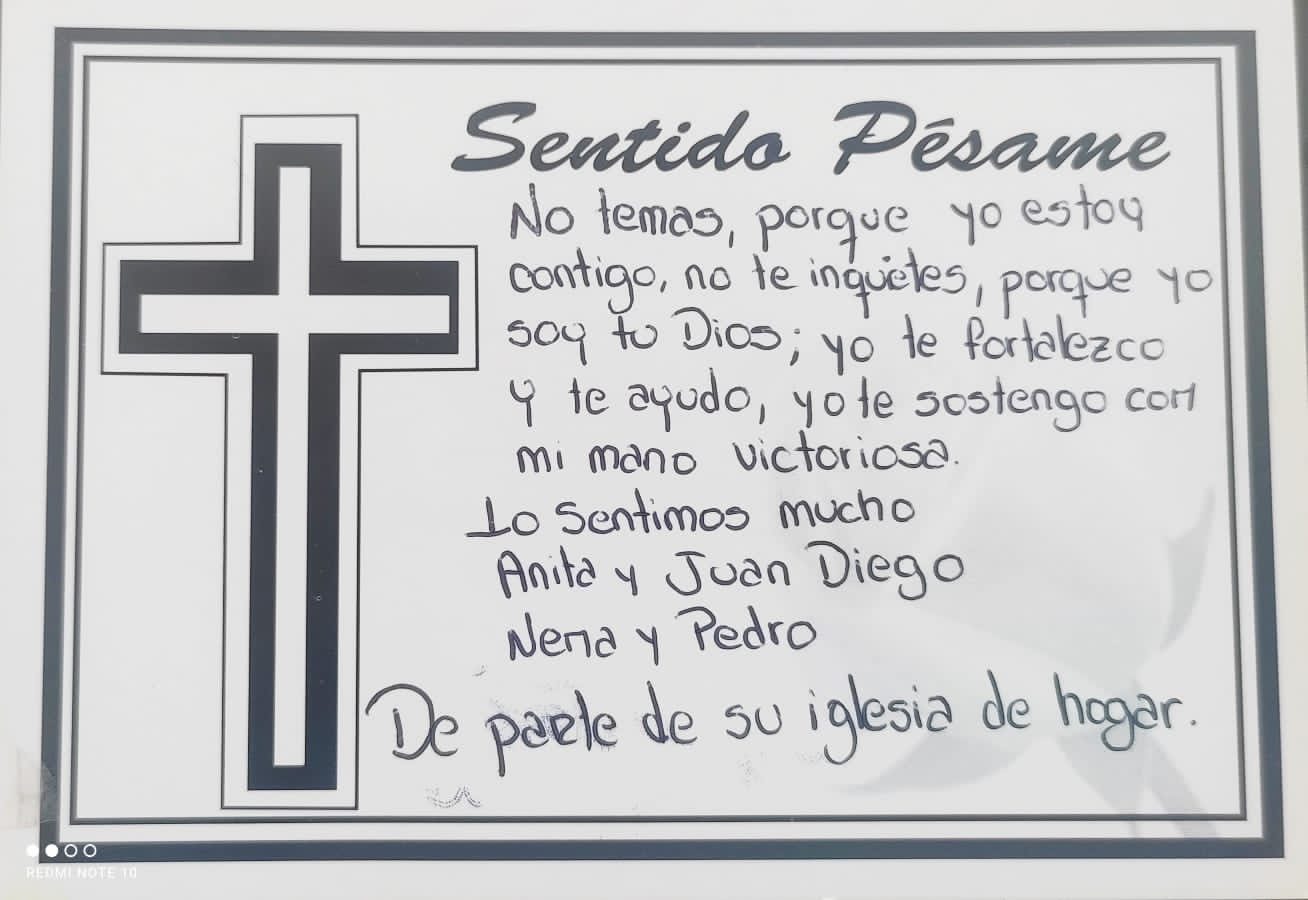 Sentido Pésame
No temas, porque yo estoy
contigo, no te inquietes, porque yo
soy tu Dios; yo te fortalezco
y te ayudo, yo te sostengo con
mi mano victoriosa.
Lo sentimos mucho
Anita y Juan Diego
Nena y Pedro
De parte de su iglesia de hogar.
REDMI NOTE 10